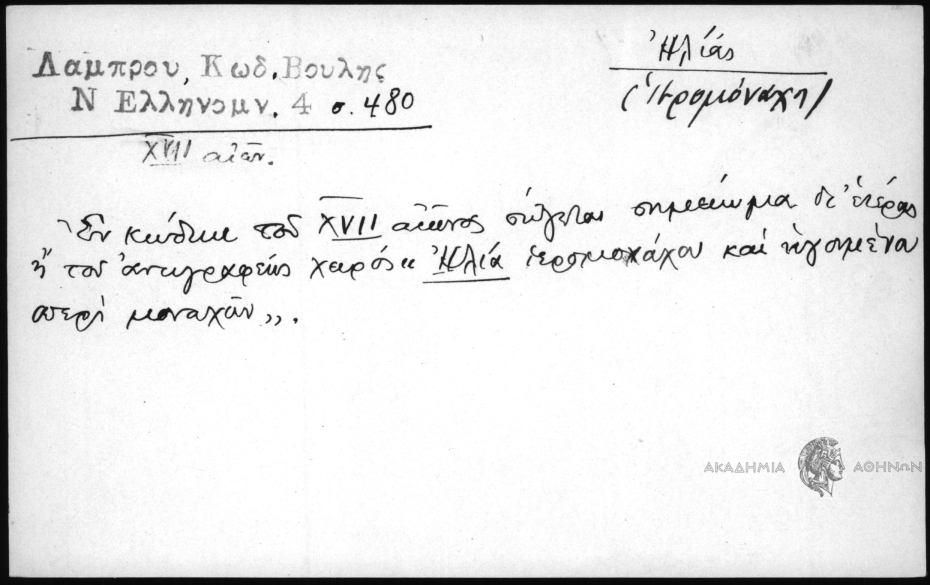 Λαμπρου, Κωδ. Βουλης
Ν Ελληνομν. 4 σ. 480
Ἠλίας
(ἱερομόναχη)
XVII αἰών.
Ἐν κώδικι τοῦ XVII αἰῶνος σώζεται σημείωμα δι' ἑτέρας
ἢ τοῦ ἀντιγραφέως χειρός « Ἠλία ἱερομονάχου καὶ ἡγουμένου
περὶ μοναχῶν ».
ΑΚΑΔΗΜΙΑ ΑΘΗΝΩΝ